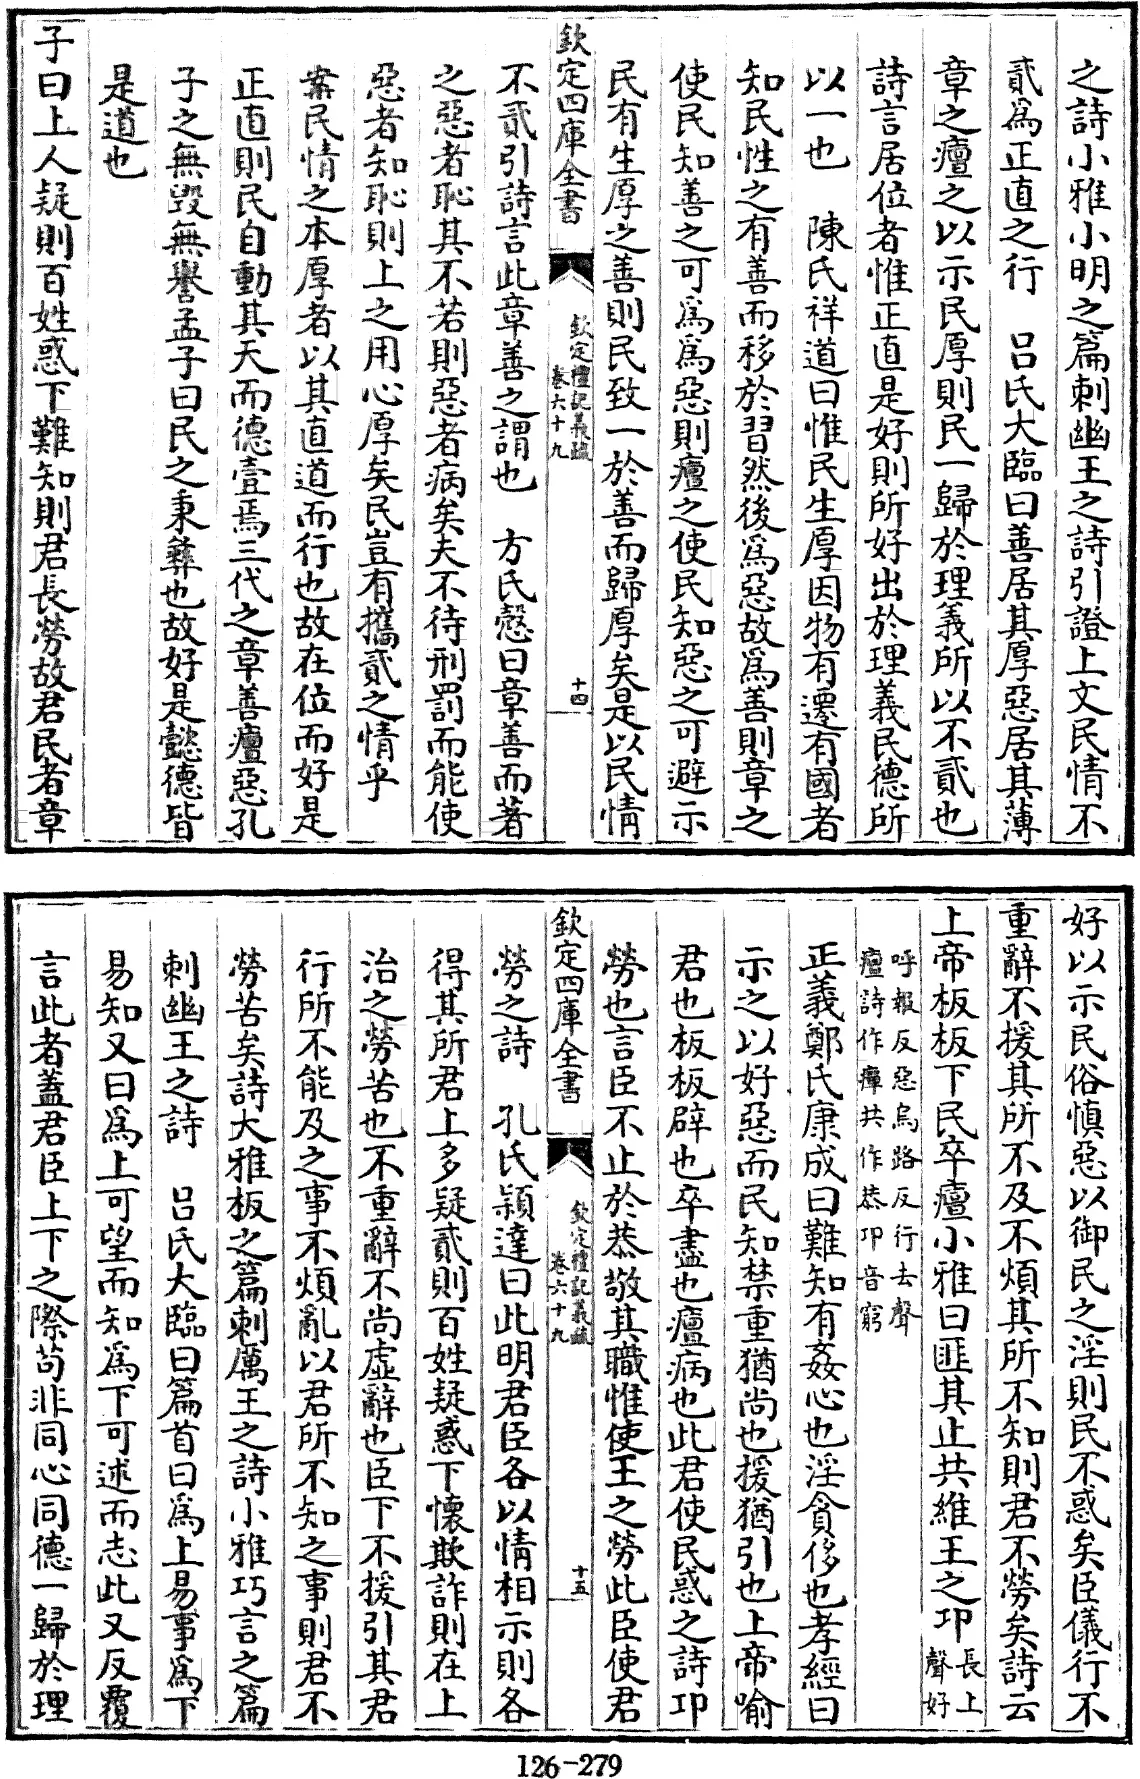 之詩小雅小明之篇刺幽王之詩引證上文民情不
貳爲正直之行　呂氏大臨曰善居其厚惡居其薄
章之癉之以示民厚則民一歸於理義所以不貳也
詩言居位者惟正直是好則所好出於理義民德所
以一也　陳氏祥道曰惟民生厚因物有遷有國者
知民性之有善而移於習然後爲惡故爲善則章之
使民知善之可爲爲惡則癉之使民知惡之可避示
民有生厚之善則民致一於善而歸厚矣是以民情
欽定四庫全書
欽定禮記義疏
卷六十九
十四
不貳引詩言此章善之謂也　方氏慤曰章善而著
之惡者恥其不若則惡者病矣夫不待刑罰而能使
惡者知恥則上之用心厚矣民豈有攜貳之情乎
案民情之本厚者以其直道而行也故在位而好是
正直則民自動其天而德壹焉三代之章善癉惡孔
子之無毀無譽孟子曰民之秉彝也故好是懿德皆
是道也
子曰上人疑則百姓惑下難知則君長勞故君民者章
好以示民俗慎惡以御民之淫則民不惑矣臣儀行不
重辭不援其所不及不煩其所不知則君不勞矣詩云
上帝板板下民卒癉小雅曰匪其止共維王之卭長上
聲好
呼報反惡烏路反行去聲
癉詩作瘅共作恭卭音窮
正義鄭氏康成曰難知有姦心也淫貪侈也孝經曰
示之以好惡而民知禁重猶尚也援猶引也上帝喻
君也板板辟也卒盡也癉病也此君使民惑之詩卭
勞也言臣不止於恭敬其職惟使王之勞此臣使君
欽定四庫全書
欽定禮記義疏
卷六十九
十五
勞之詩　孔氏穎達曰此明君臣各以情相示則各
得其所君上多疑貳則百姓疑惑下懷欺詐則在上
治之勞苦也不重辭不尚虛辭也臣下不援引其君
行所不能及之事不煩亂以君所不知之事則君不
勞苦矣詩大雅板之篇刺厲王之詩小雅巧言之篇
刺幽王之詩　呂氏大臨曰篇首曰爲上易事爲下
易知又曰爲上可望而知爲下可述而志此又反覆
言此者蓋君臣上下之際苟非同心同德一歸於理
126-279